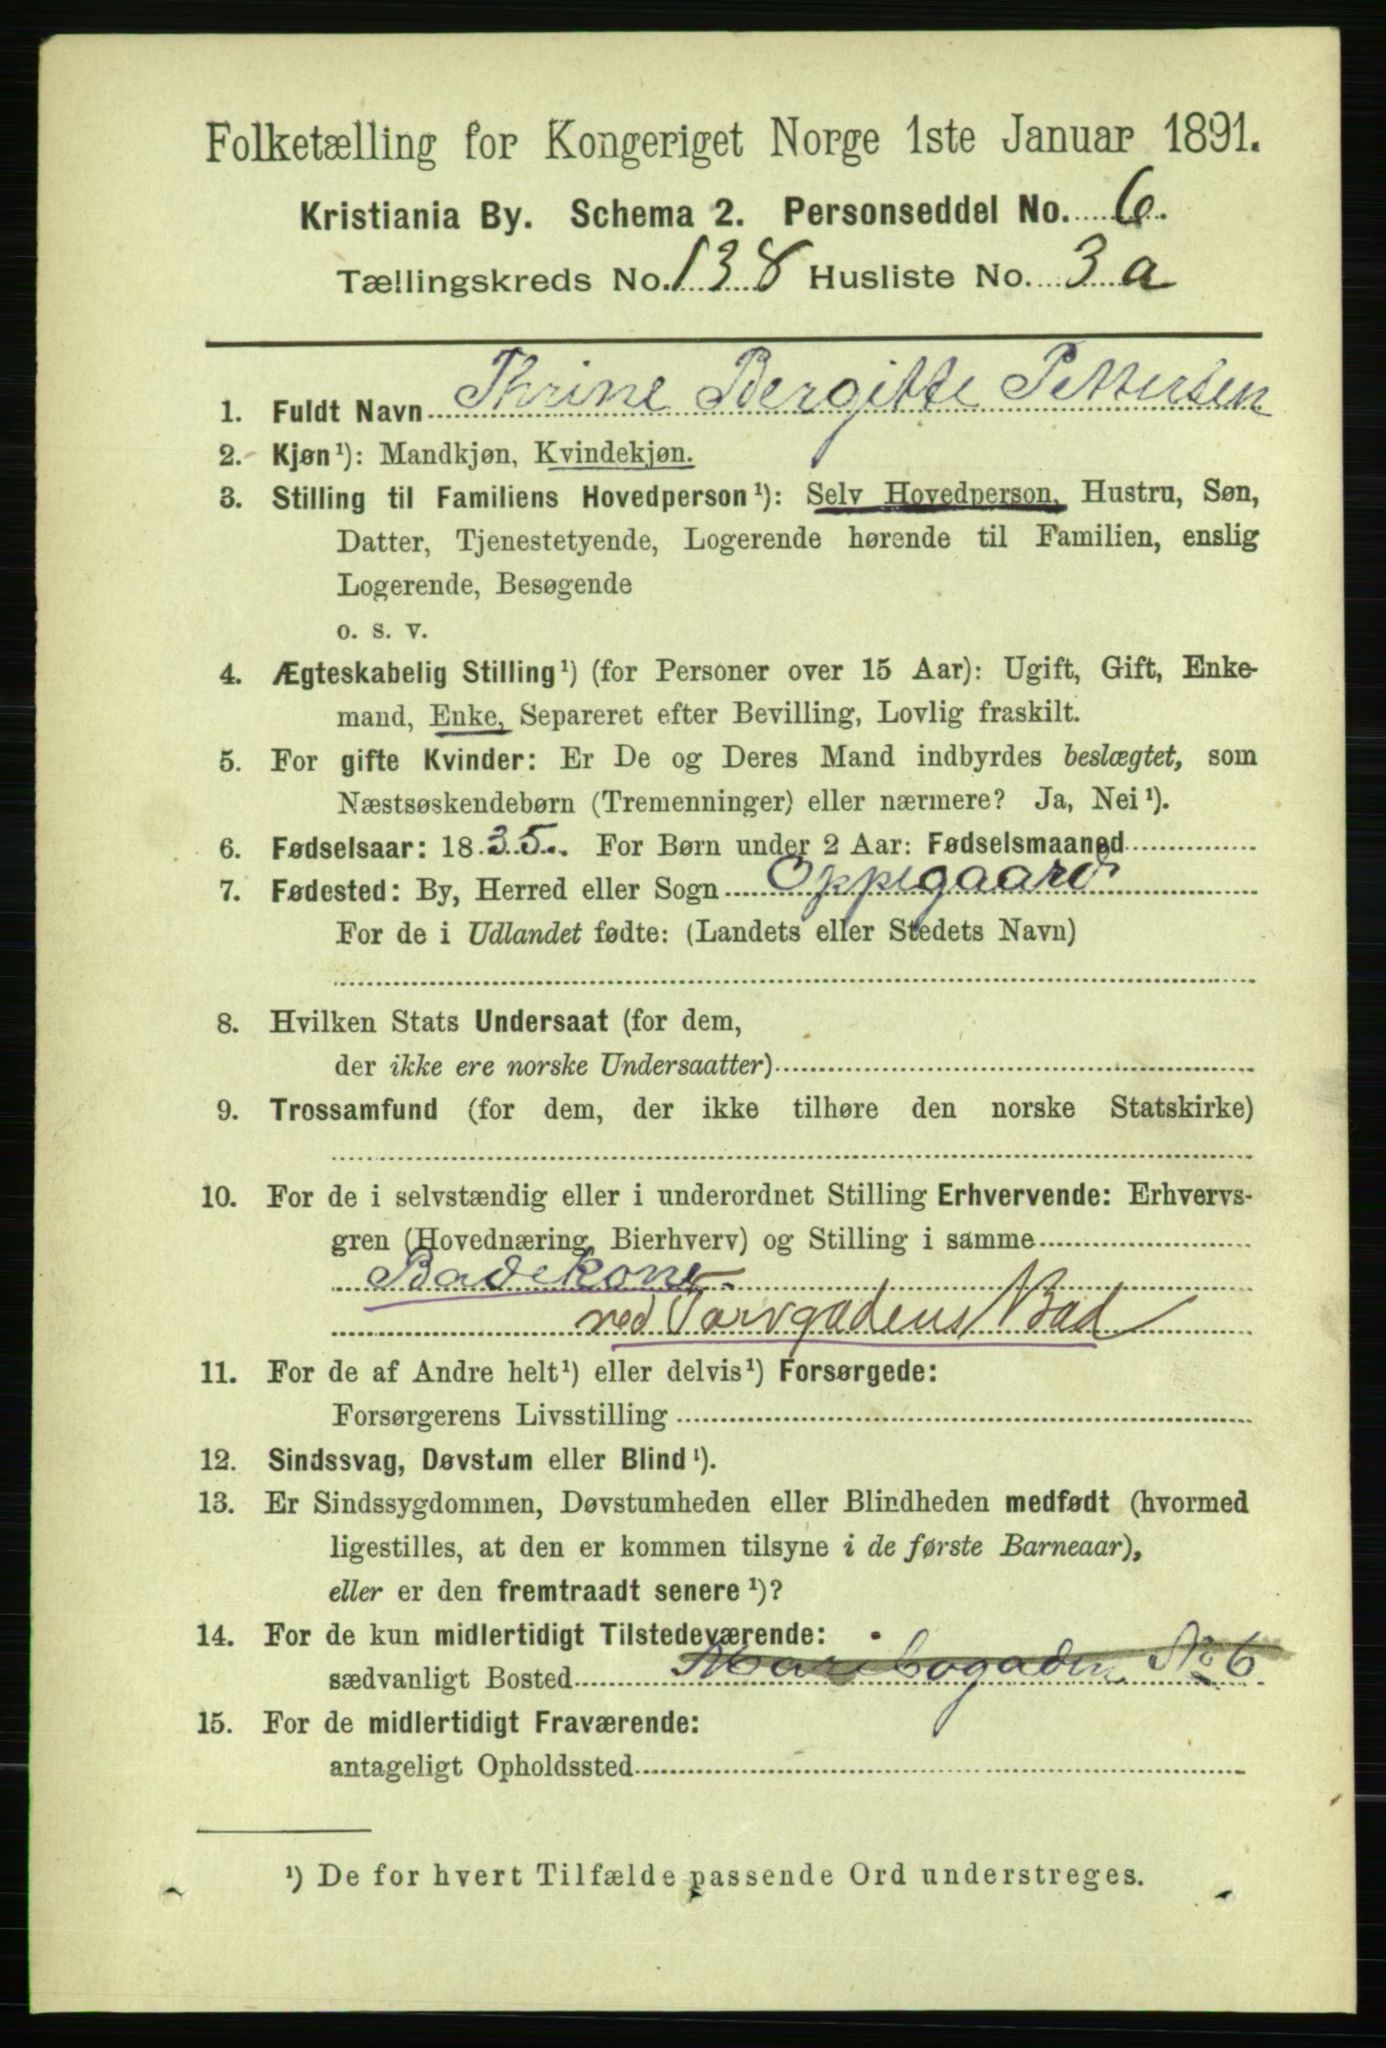 Folketælling for Kongeriget Norge 1ste Januar 1891.
Kristiania By. Schema 2. Personseddel No. 6.
Tællingskreds No. 138 Husliste No. 3 a
1. Fuldt Navn Thrine Bergitte Pettersen
2. Kjøn¹): Mandkjøn, Kvindekjøn.
3. Stilling til Familiens Hovedperson¹): Selv Hovedperson, Hustru, Søn,
Datter, Tjenestetyende, Logerende hørende til Familien, enslig
Logerende, Besøgende
o. s. v.
4. Ægteskabelig Stilling¹) (for Personer over 15 Aar): Ugift, Gift, Enke-
mand, Enke, Separeret efter Bevilling, Lovlig fraskilt.
5. For gifte Kvinder: Er De og Deres Mand indbyrdes beslægtet, som
Næstsøskendebørn (Tremenninger) eller nærmere? Ja, Nei¹).
6. Fødselsaar: 1835. For Børn under 2 Aar: Fødselsmaaned
7. Fødested: By, Herred eller Sogn Oppegaard
For de i Udlandet fødte: (Landets eller Stedets Navn)
8. Hvilken Stats Undersaat (for dem,
der ikke ere norske Undersaatter)
9. Trossamfund (for dem, der ikke tilhøre den norske Statskirke)
10. For de i selvstændig eller i underordnet Stilling Erhvervende: Erhvervs-
gren (Hovednæring, Bierhverv) og Stilling i samme
Badekone
ved Torvgadens Bad
11. For de af Andre helt¹) eller delvis¹) Forsørgede:
Forsørgerens Livsstilling
12. Sindssvag, Døvstum eller Blind¹).
13. Er Sindssygdommen, Døvstumheden eller Blindheden medfødt (hvormed
ligestilles, at den er kommen tilsyne i de første Barneaar),
eller er den fremtraadt senere¹)?
14. For de kun midlertidigt Tilstedeværende:
sædvanligt Bosted Maribogaden No 6
15. For de midlertidigt Fraværende:
antageligt Opholdssted
¹) De for hvert Tilfælde passende Ord understreges.